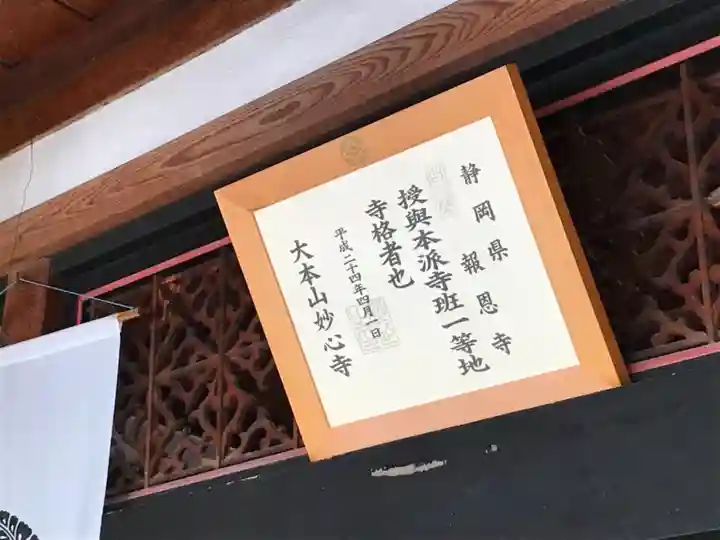 静岡県
報恩寺
授與本派寺班一等地
寺格者也
平成二十四年四月一日
大本山妙心寺